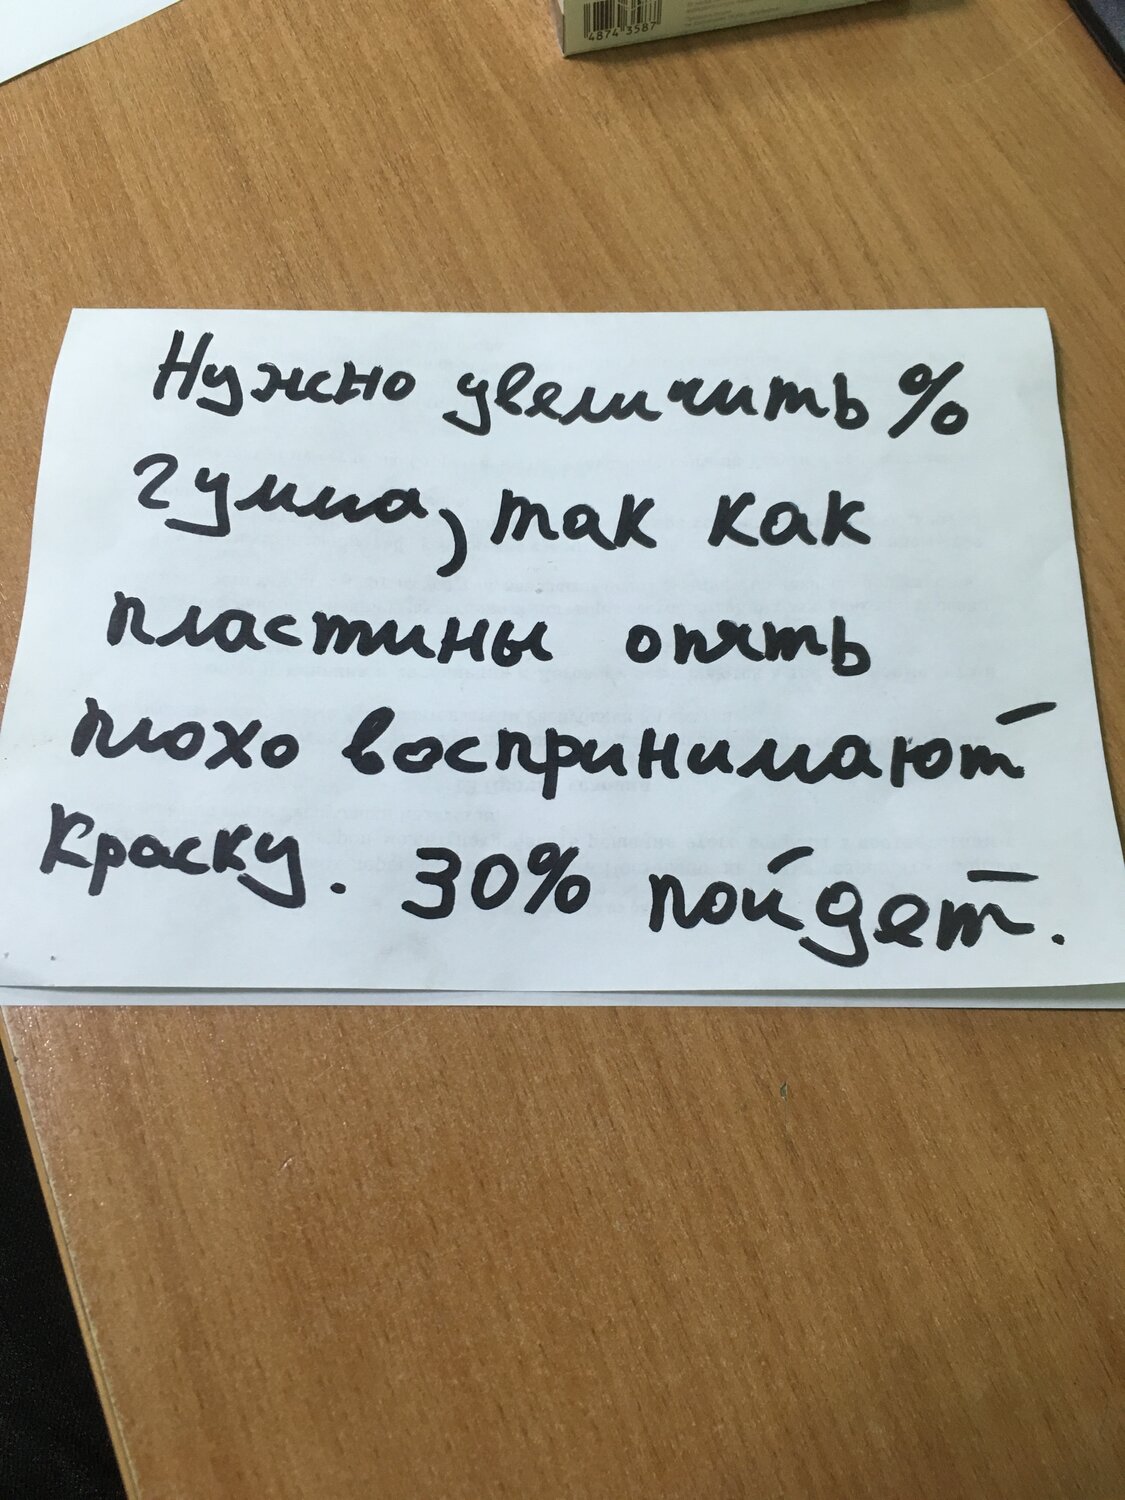 4874 3587
Нужно увеличить %
гумма, так как
пластины опять
плохо воспринимают
краску. 30% пойдет.